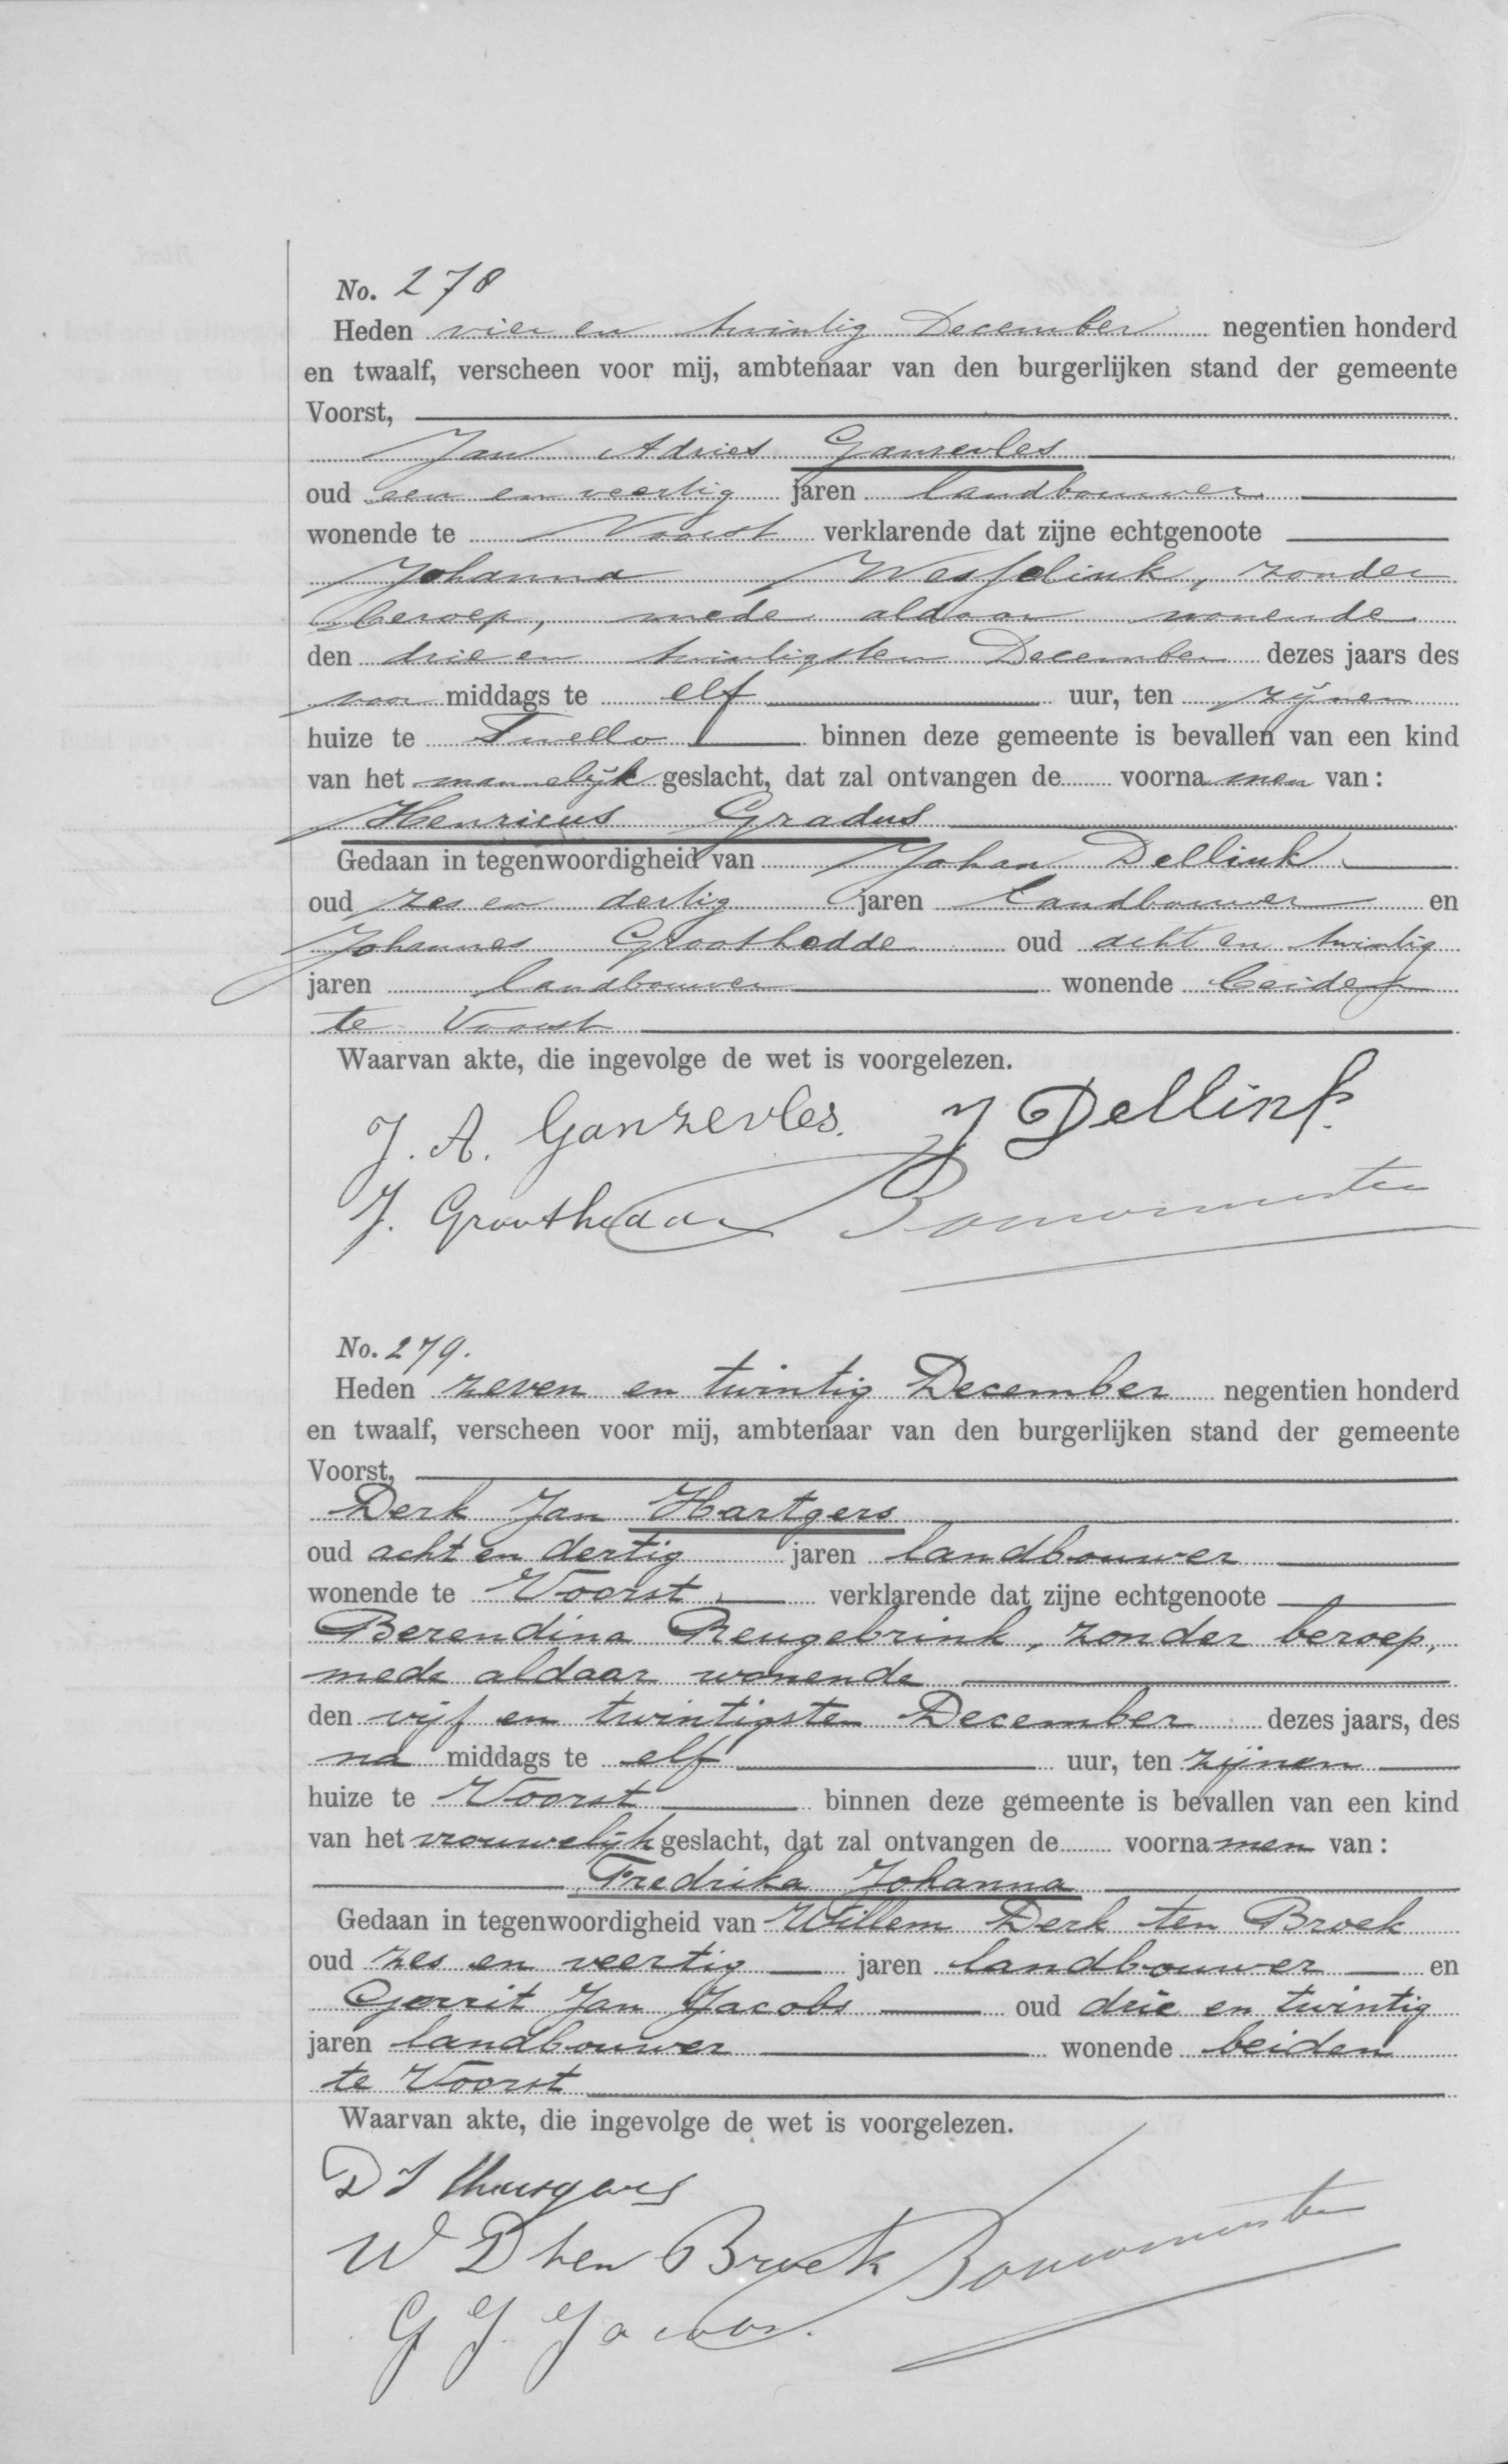 No. 278
Heden vier en twintig December negentien honderd
en twaalf, verscheen voor mij, ambtenaar van den burgerlijken stand der gemeente
Voorst,
Jan Adries Ganzevles
oud een en veertig jaren landbouwer
wonende te Voorst verklarende dat zijne echtgenoote
Johanna Wesselink, zonder
beroep, mede aldaar wonende
den drie en twintigsten December dezes jaars des
voor middags te elf uur, ten zijnen
huize te Twello binnen deze gemeente is bevallen van een kind
van het mannelijk geslacht, dat zal ontvangen de voornamen van:
Henricus Gradus
Gedaan in tegenwoordigheid van Johan Dellink
oud zes en dertig jaren landbouwer en
Johannes Groothedde oud acht en twintig
jaren landbouwer wonende beiden
te Voorst
Waarvan akte, die ingevolge de wet is voorgelezen.
J. A. Ganzevles. J Dellink.
J. Groothedde
No. 279.
Heden zeven en twintig December negentien honderd
en twaalf, verscheen voor mij, ambtenaar van den burgerlijken stand der gemeente
Voorst,
Derk Jan Hartgers
oud acht en dertig jaren landbouwer
wonende te Voorst verklarende dat zijne echtgenoote
Berendina Reugebrink, zonder beroep,
mede aldaar wonende
den vijf en twintigsten December dezes jaars, des
na middags te elf uur, ten zijnen
huize te Voorst binnen deze gemeente is bevallen van een kind
van het vrouwelijk geslacht, dat zal ontvangen de voornamen van:
Fredrika Johanna
Gedaan in tegenwoordigheid van Willem Derk ten Broek
oud zes en veertig jaren landbouwer en
Gerrit Jan Jacobs oud drie en twintig
jaren landbouwer wonende beiden
te Voorst
Waarvan akte, die ingevolge de wet is voorgelezen.
D J
W D ten Broek
G J Jacobs.